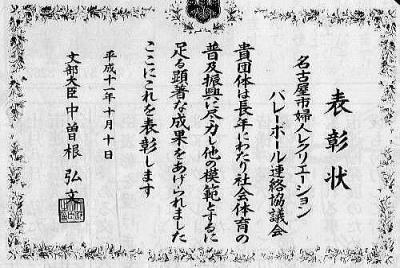 表彰状
名古屋市婦人レクリエーション
バレーボール連絡協議会
貴団体は長年にわたり社会体育の
普及振興に尽力し他の模範とするに
足る顕著な成果をあげられました
ここにこれを表彰します
平成十一年十月十日
文部大臣中曽根弘文